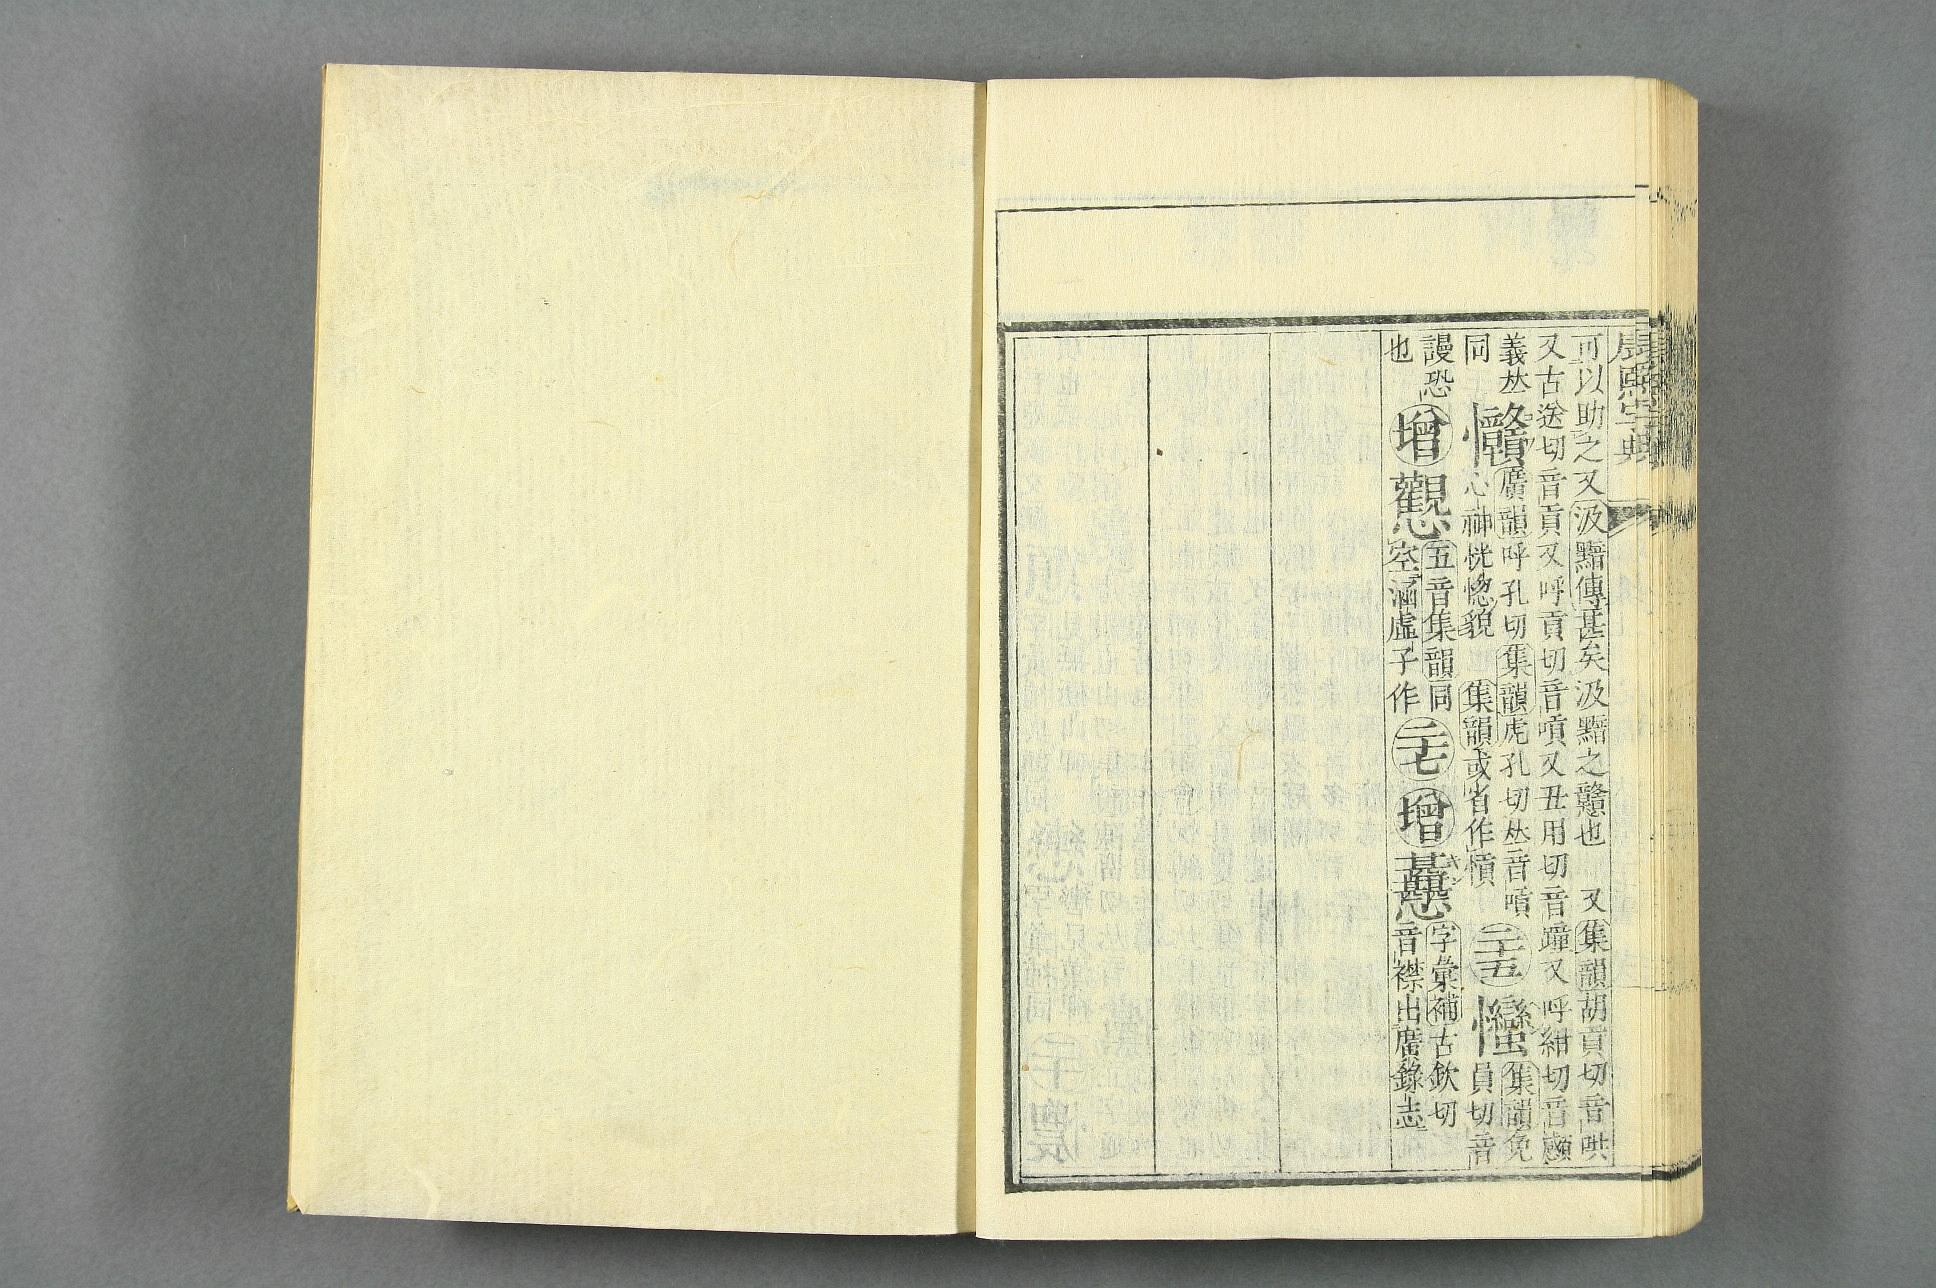 康熙字典
可以助之又汲黯傳甚矣汲黯之戇也　又集韻胡貢切音哄
又古送切音貢又呼貢切音嗊又丑用切音蹱又呼紺切音顑
義𠀤戇廣韻呼孔切集韻虎孔切𠀤音嗊二十五𢥠集韻免
同心神恍惚貌　集韻或省作愩員切音
謾恐增觀五音集韻同二十七增字彙補古欽切
也空涵虛子作音襟出廣錄志